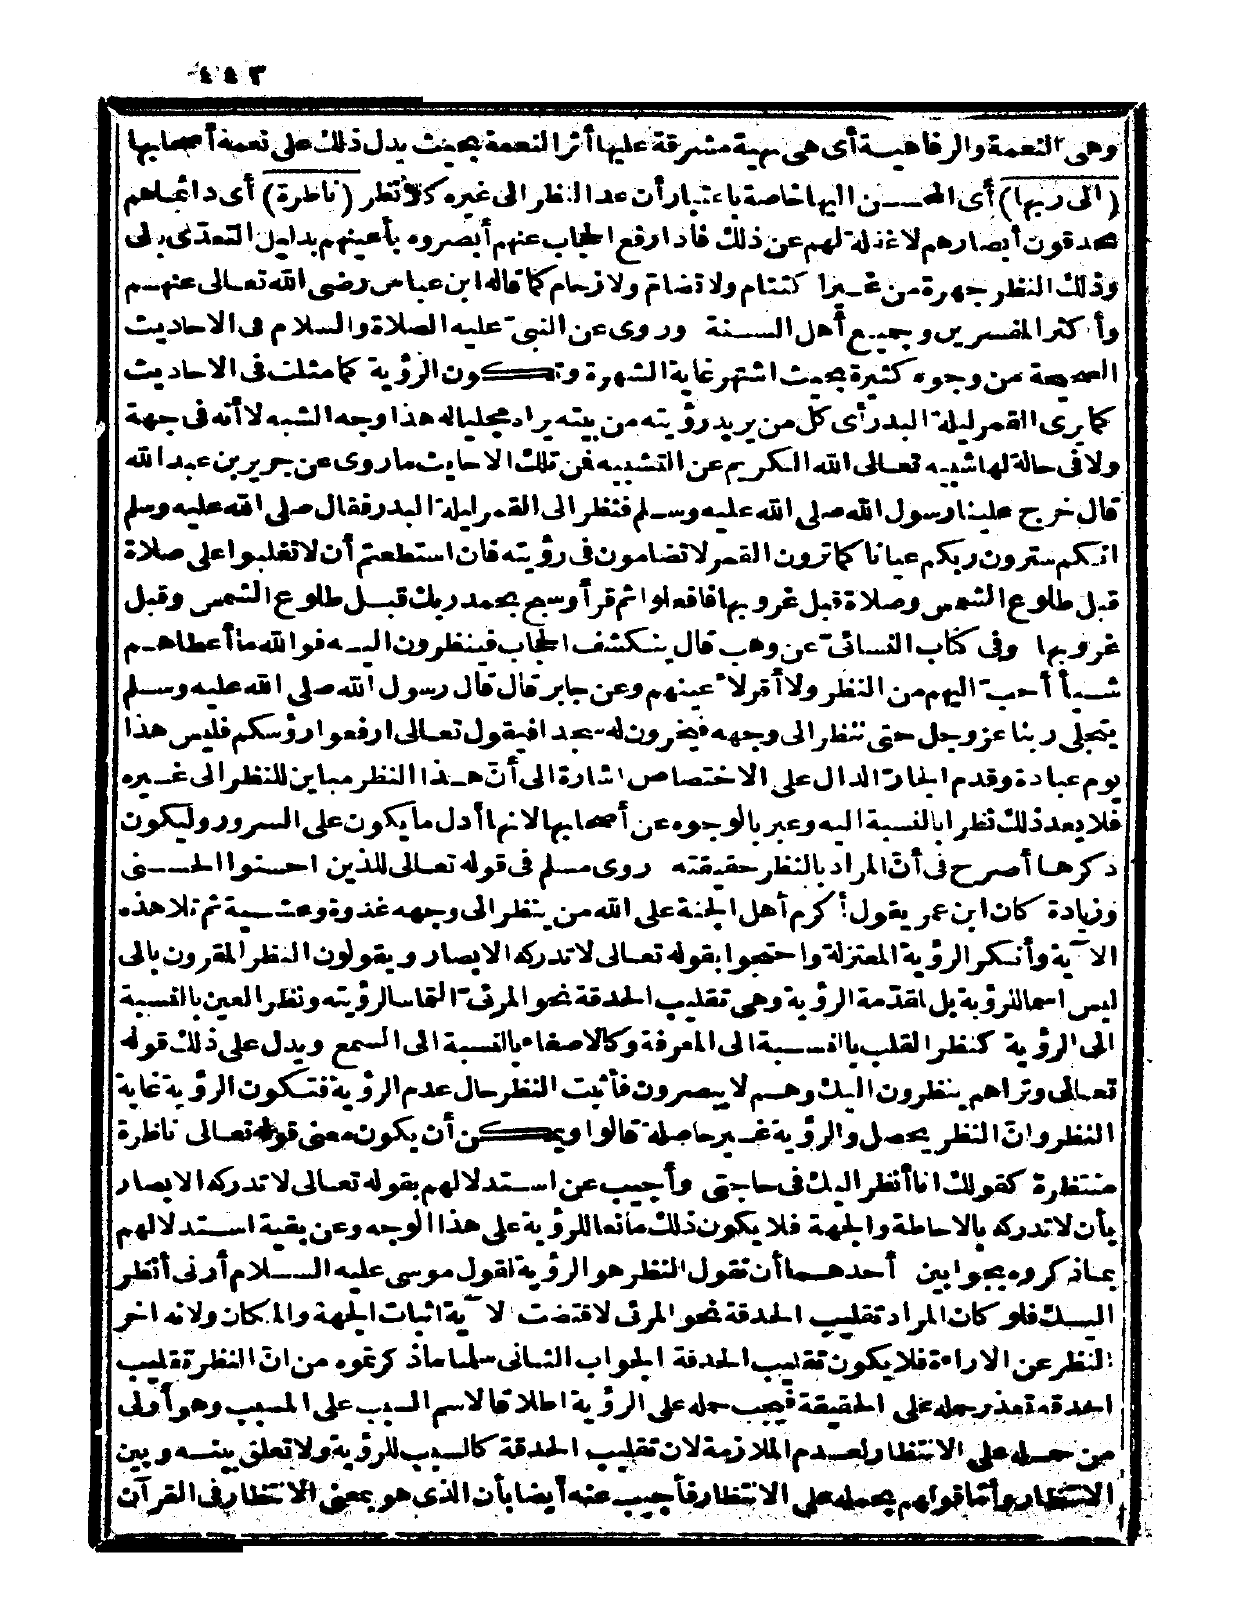 ٤٤٣
وهى النعمة والرفاهيـة أى هى بهية مشرقة عليها أثر النعمة بحيث يدل ذلك على نعمة أصحابها
(الى ربها) أى المحسـن اليها خاصة باعتبار أن عد النظر الى غيره كلا نظر (ناظرة) أى دائما هم
محدقون أبصارهم لا غفلة لهم عن ذلك فاذا رفع الحجاب عنهم أبصروه بأعينهم بدليل التعدّى بلى
وذلك النظر جهرة من غـير اكتتام ولا تضامّ ولا زحام كما قاله ابن عباس رضى الله تعـالى عنهـم
وأكثر المفسرين وجميـع أهل السـنة وروى عن النبىّ عليه الصلاة والسلام فى الاحاديث
الصحيحة من وجوه كثيرة بحيث اشتهر غاية الشهرة وتكون الرؤية كما مثلت فى الاحاديث
كما يرى القمر ليلة البدر أى كل من يريد رؤيته من بيته يراه مجليا له هذا وجه الشبه لا أنه فى جهة
ولا فى حالة لها شبيه تعـالى الله الكريم عن التشبيه فمن تلك الاحايث ما روى عن جرير بن عبد الله
قال خرج علينا رسول الله صلى الله عليه وسـلم فنظر الى القمر ليلة البدر فقال صلى الله عليه وسلم
انـكم سترون ربكم عيانا كما ترون القمر لا تضامون فى رؤيته فان استطعتم أن لا تغلبوا على صلاة
قبل طلوع الشمس وصلاة قبل غروبها فافعلوا ثم قرأ وسبح بحمد ربك قبـل طلوع الشمس وقبل
غروبها وفى كتاب النسائىّ عن وهب قال ينـكشف الحجاب فينظرون اليـه فو الله ما أعطاهـم
شـيأ أحبّ اليهم من النظر ولا أقر لأعينهم وعن جابر قال قال رسول الله صلى الله عليه وسـلم
يتجلى ربنا عز وجل حتى ننظر الى وجهه فيخرون له سجدا فيقول تعـالى ارفعوا رؤسكم فليس هذا
يوم عبادة وقدم الجارّ الدال على الاختصاص اشارة الى أنّ هـذا النظر مباين للنظر الى غـيره
فلا يعد ذلك نظرا بالنسبة اليه وعبر بالوجوه عن أصحابها لانها أدل ما يكون على السرور وليكون
ذكرهـا أصرح فى أنّ المراد بالنظر حقيقته روى مسلم فى قوله تعـالى للذين احسنوا الحسـنى
وزيادة كان ابن عمر يقول أكرم أهل الجنة على الله من ينظر الى وجهه غدوة وعشـية ثم تلا هذه
الآية وأنـكر الرؤية المعتزلة واحتجوا بقوله تعـالى لا تدركه الابصار ويقولون النظر المقرون بالى
ليس اسما للرؤية بل لمقدّمة الرؤية وهى تقليب الحدقة نحو المرئىّ التماسا لرؤيته ونظر العين بالنسبة
الى الرؤية كنظر القلب بالنسـبة الى المعرفة وكالاصغاء بالنسبة الى السمع ويدل على ذلك قوله
تعـالى وتراهم ينظرون اليك وهـم لا يبصرون فأثبت النظر حال عدم الرؤية فتـكون الرؤية غاية
النظر وانّ النظر يحصل والرؤية غـير حاصلة قالوا ويمكن أن يكون معنى قوله تعـالى ناظرة
منتظرة كقولك انا أنظر اليك فى حاجتى وأجيب عن اسـتدلالهم بقوله تعـالى لا تدركه الابصار
بأن لا تدركه بالاحاطة والجهة فلا يكون ذلك مانعا للرؤية على هذا الوجه وعن بقية اسـتدلالهم
بماذكروه بجوابين أحدهـما أن نقول النظر هو الرؤية لقول موسى عليه السـلام أرنى أنظر
اليـك فلو كان المراد تقليب الحدقة نحو المرئى لاقتضت الآية اثبات الجهة والمـكان ولانه اخر
النظر عن الاراءة فلا يكون تقليب الحدقة الجواب الثانى سلمنا ماذكرتموه من انّ النظر تقليب
الحدقة تعذر حمله على الحقيقة فيجب حمله على الرؤية اطلاقا لاسم السبب على المسبب وهو أولى
من حمـله على الانتظار لعـدم الملازمة لان تقليب الحدقة كالسبب للرؤية ولا تعلق بينـه وبين
الانتظار وأمّا قولهم بحمله على الانتظار فأجيب عنه أيضا بأن الذى هو بمعنى الانتظار فى القرآن